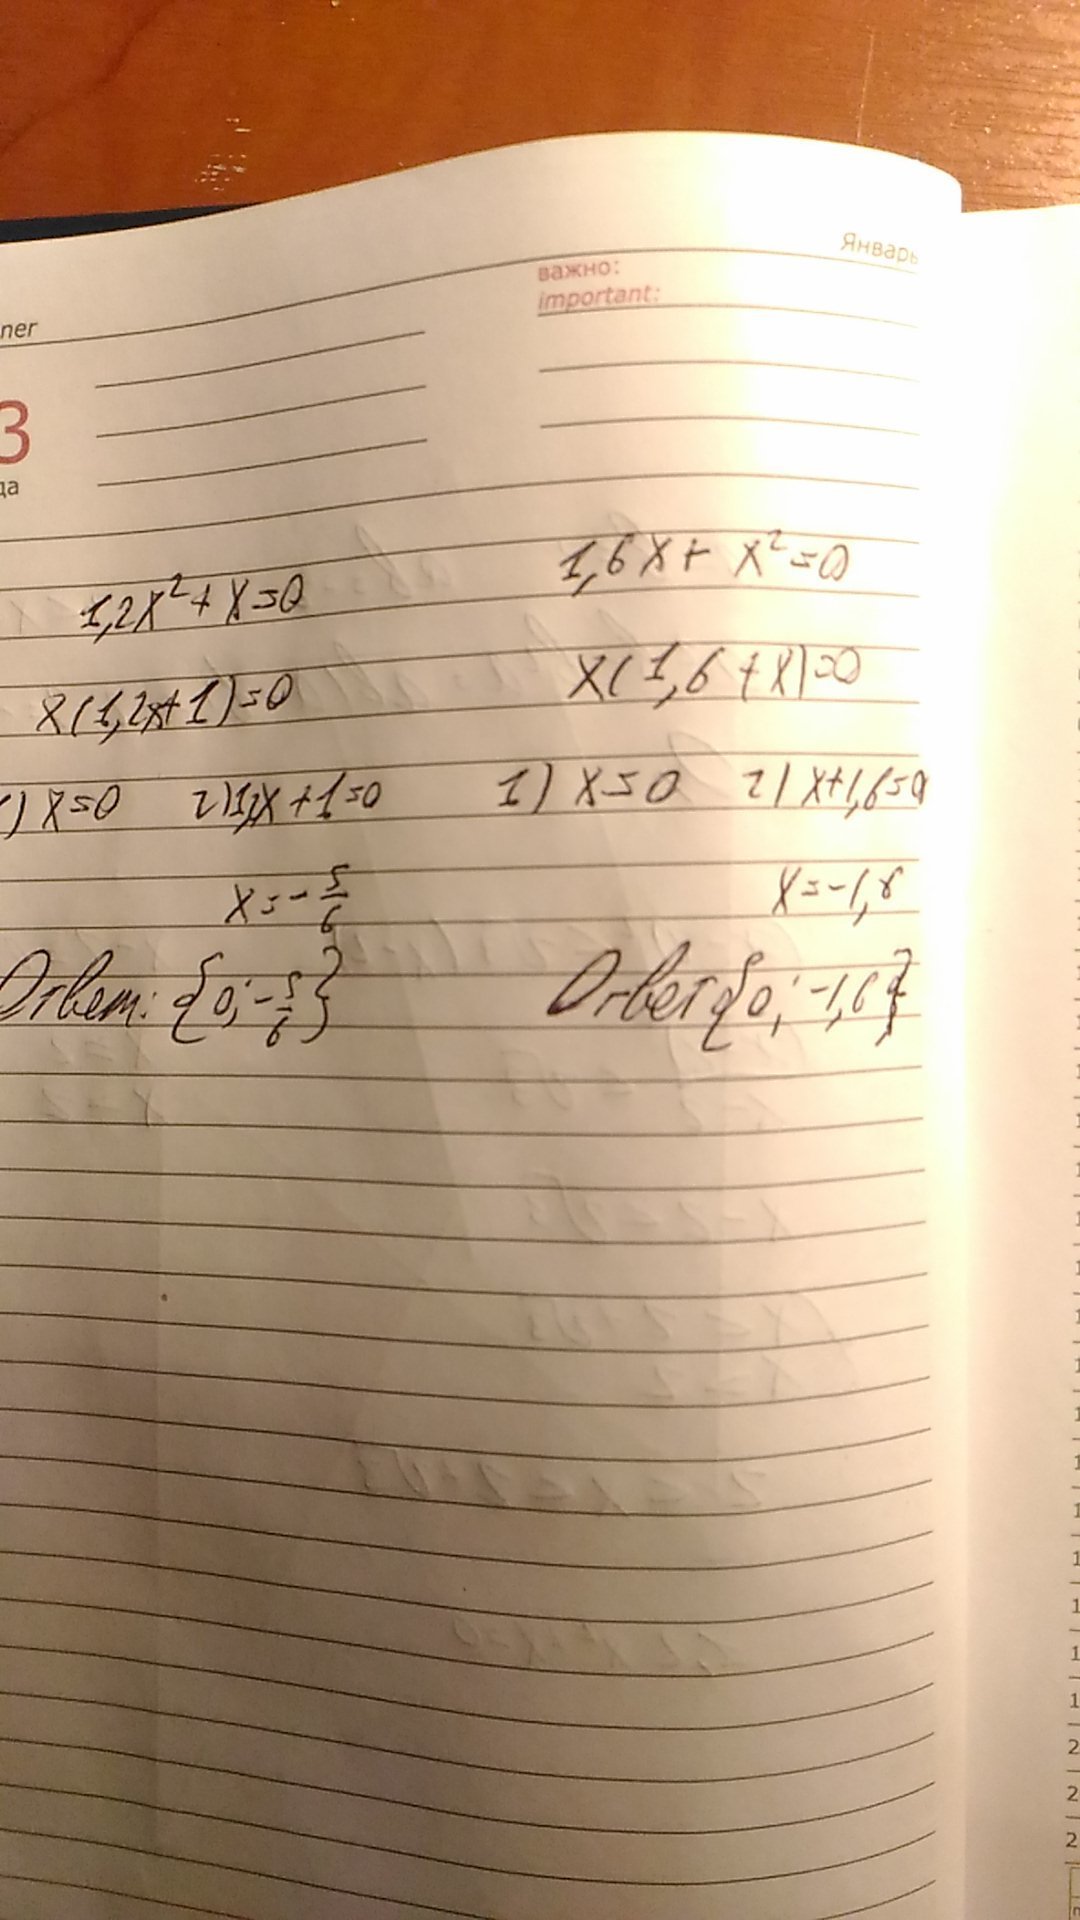 Январь
важно:
important:
ner
3
да
1,2x²+x=0
x(1,2x+1)=0
1) x=0 2) 1,2x+1=0
x=-5/6
Ответ: {0; -5/6}
1,6x+x²=0
x(1,6+x)=0
1) x=0 2) x+1,6=0
x=-1,6
Ответ {0; -1,6}